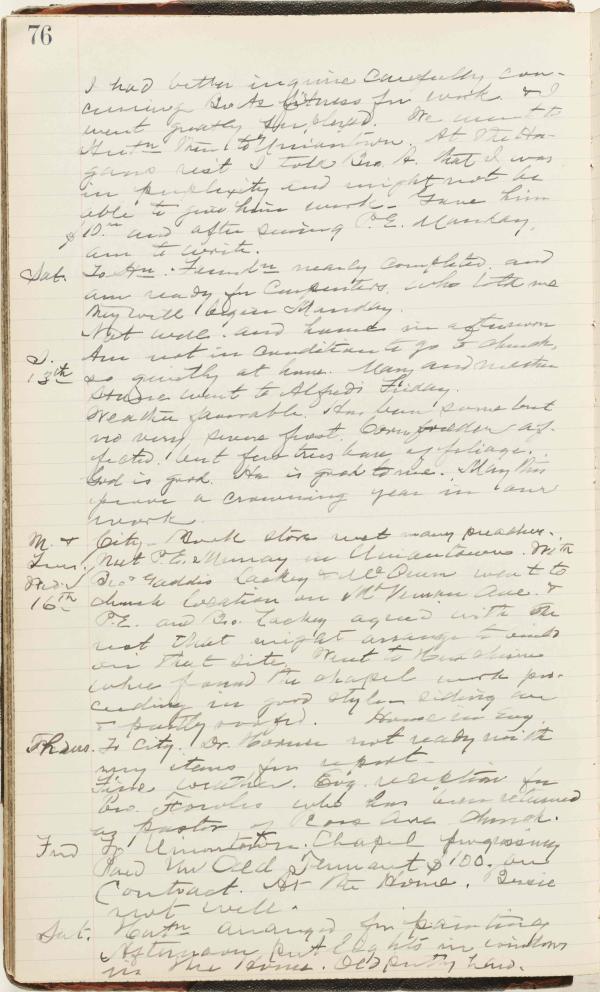 76
I had better inquire carefully con-
cerning Bro. A's fitness for work. & I
went greatly. We went to
then to Uniontown. At the Ha-
gans rest I told Bro. A. that I was
in perplexity and might not be
able to give him work. Gave him
$10.00 and after seeing P.E. Monday,
am to write.
Sat. To Hn. Found'n nearly completed and
am ready for Carpenters, who told me
they will begin Monday.
Not well. and home in afternoon
S. Am not in condition to go to church,
13th so quietly at home. Mary and
went to Alfreds Friday.
Weather favorable. Has been some but
no very severe frost. Corn fodder af-
fected. but few trees bare of foliage.
God is good. He is good to me. May this
prove a crowning year in our
work.
M. & City. Book store met many preachers.
Tues. Met P.E. Murray in Uniontown. With
Wed. Bros Gaddis Lackey & McQuen went to
16th church location on Mt Vernon Ave. &
P.E. and Bro. Lackey agreed with the
rest that might arrange to build
on that site. Went to
where found the chapel work pro-
ceeding in good style siding on
& partly roofed. Home in Evg.
Thurs. To City. Dr. not ready with
my items for report.
Fine weather. Evg. reception for
Bro. Fowles who has been returned
as pastor of Ross Ave church.
Frid To Uniontown. Chapel progressing
Paid Wm Old Tennant $100. on
Contract. At the Home.
not well.
Sat. arranged for painting
Afternoon put lights in windows
in the Home. Old putty hard.